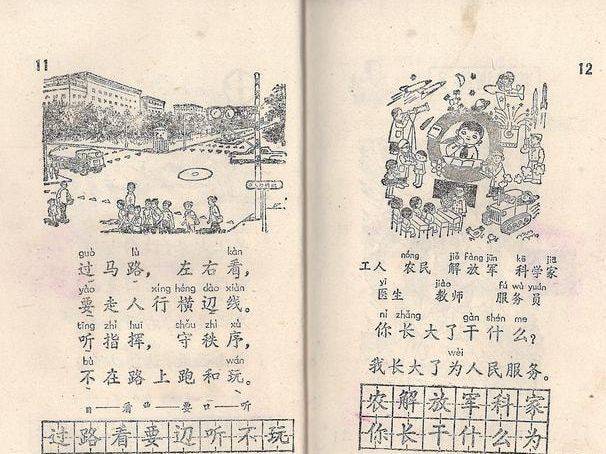 11
guò lù kàn
过马路，左右看，
yào xíng héng dào xiàn
要走人行横辺线。
tīng zhǐ huī shǒu zhì xù
听指挥，守秩序，
bù wán
不在路上跑和玩。
目——看 覀——要 口——听
过路看要辺听不玩
12
nóng jiě fàng jūn kē jiā
工人 农民 解放军 科学家
yī jiào fú wù yuán
医生 教师 服务员
nǐ zhǎng gàn shén me
你长大了干什么？
wèi
我长大了为人民服务。
农解放军科家
你长干什么为